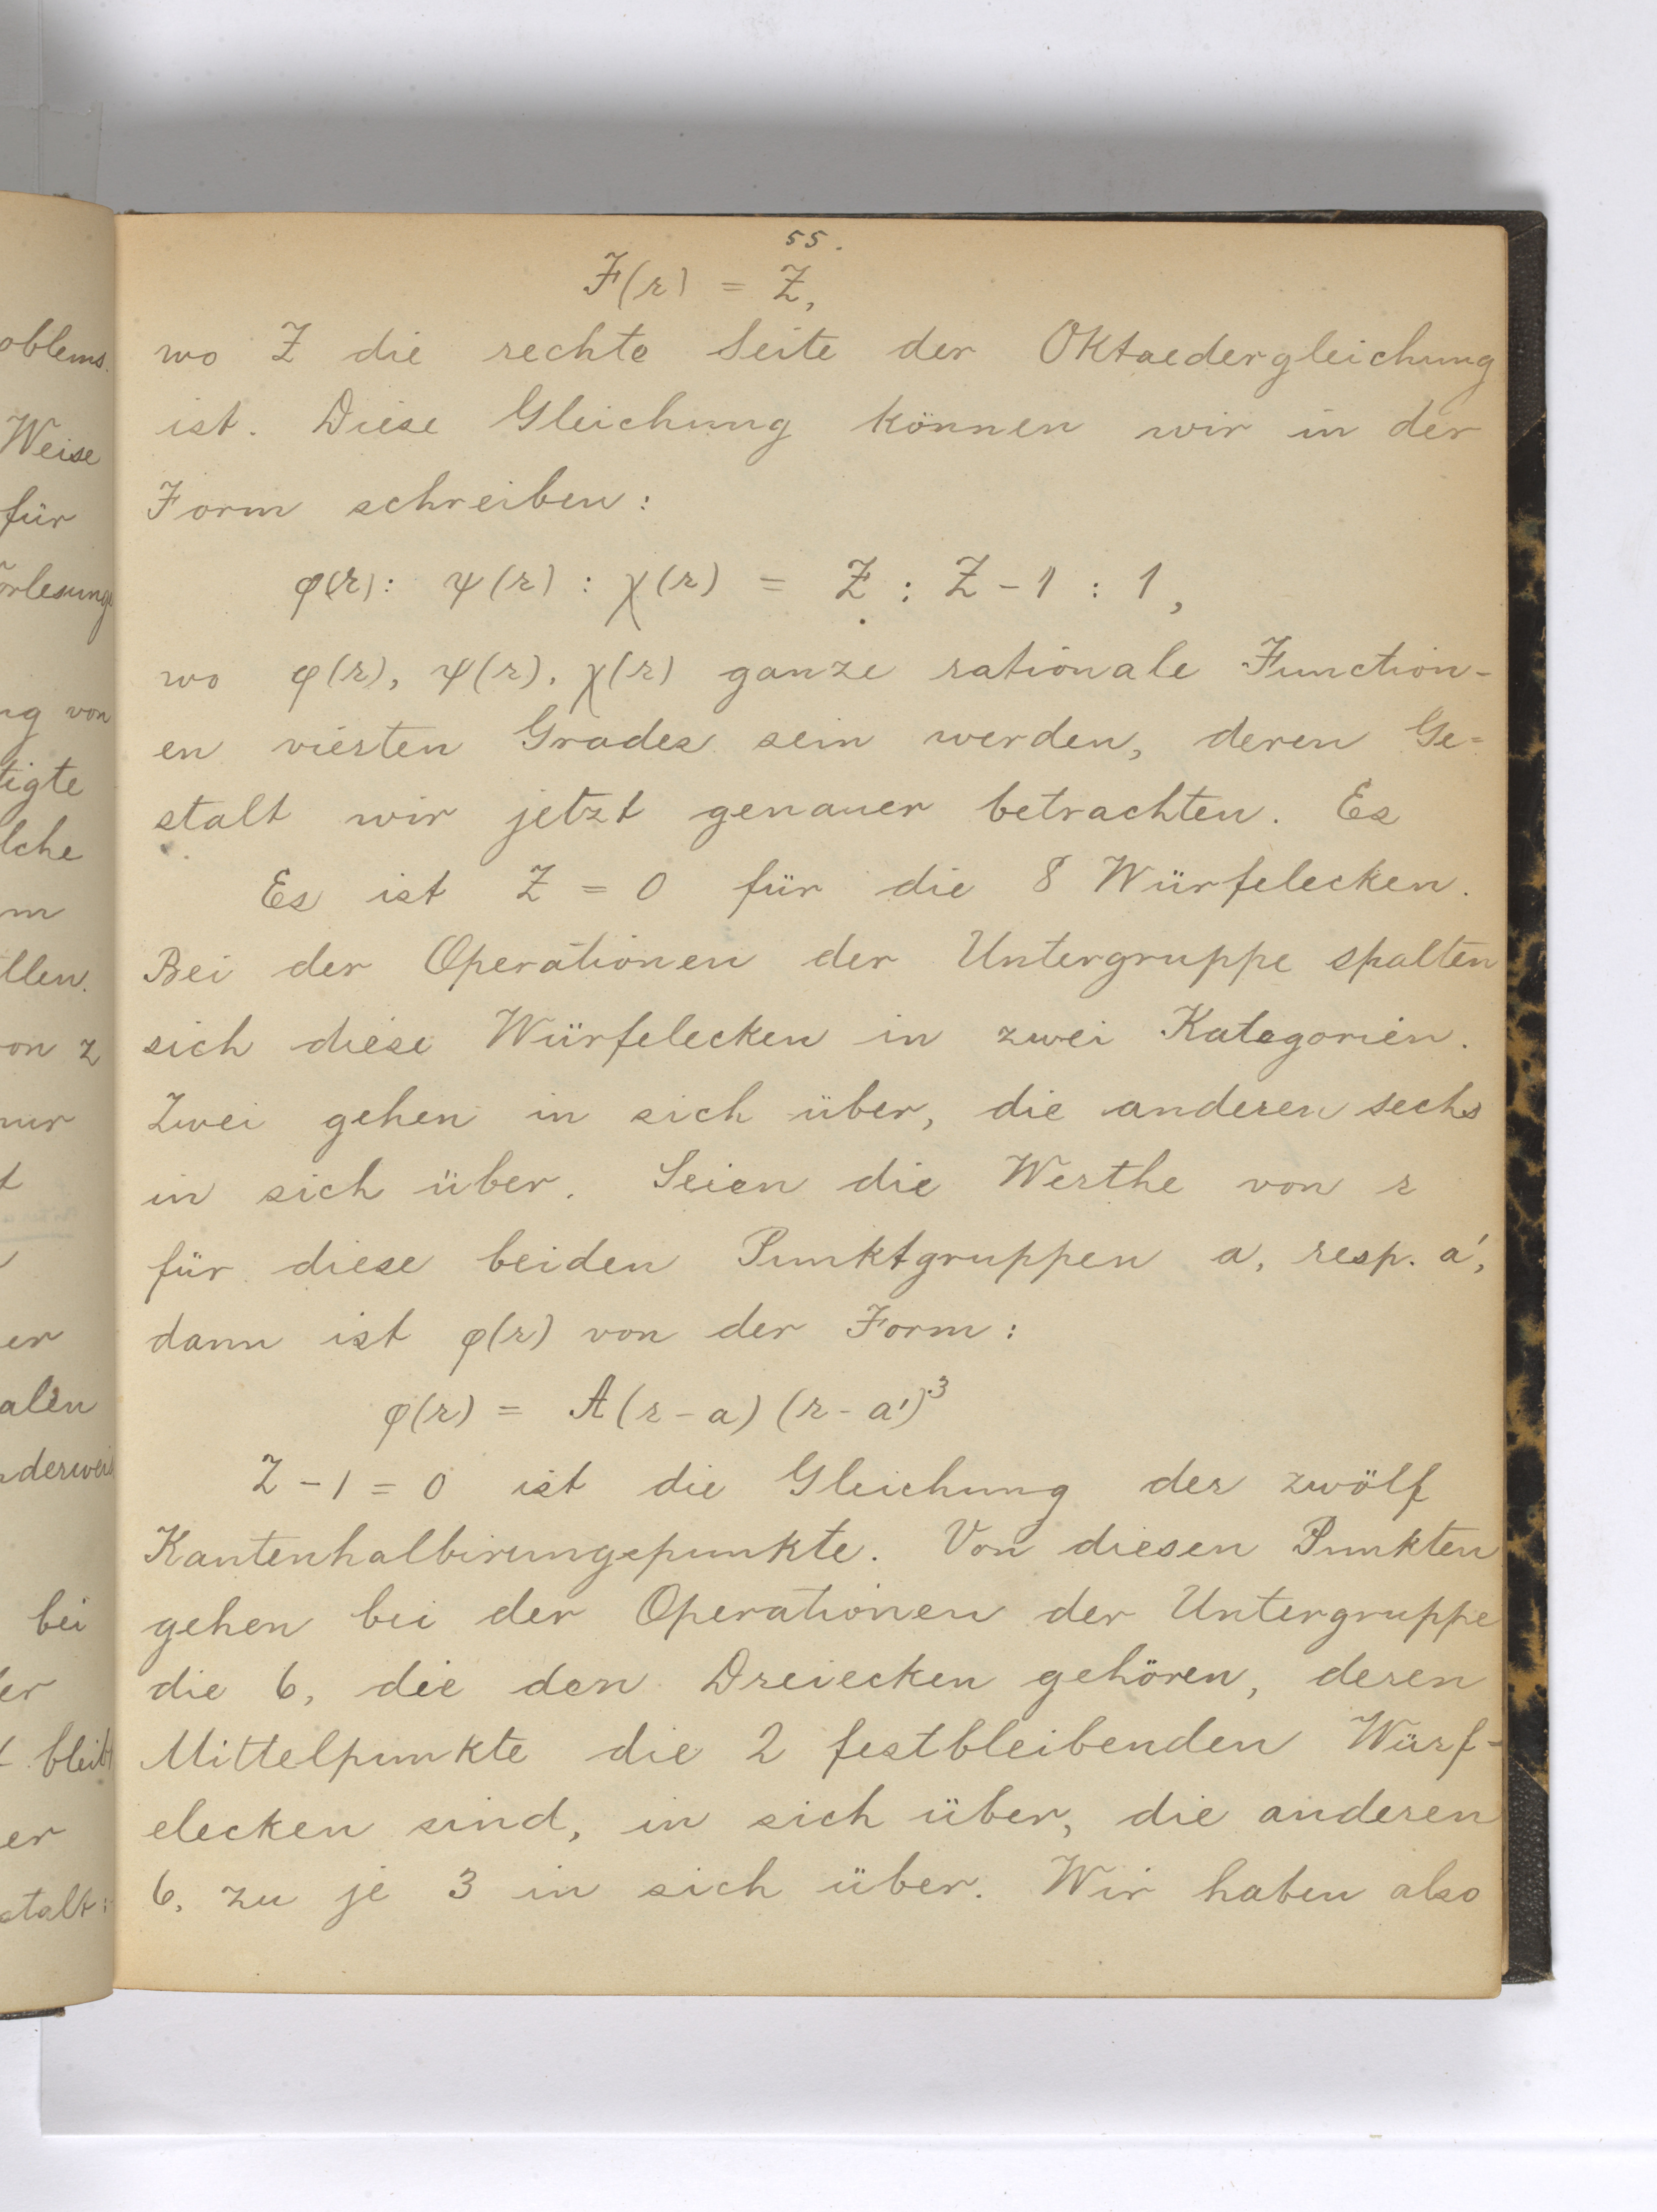 55.
F(r) = Z,
wo Z die rechte Seite der Oktaedergleichung
ist. Diese Gleichung können wir in der
Form schreiben:
φ(r) : ψ(r) : χ(r) = Z : Z - 1 : 1,
wo φ(r), ψ(r), χ(r) ganze rationale Function-
en vierten Grades sein werden, deren Ge=
stalt wir jetzt genauer betrachten. Es
Es ist Z = 0 für die 8 Würfelecken.
Bei der Operationen der Untergruppe spalten
sich diese Würfelecken in zwei Kategorien.
Zwei gehen in sich über, die anderen sechs
in sich über. Seien die Werthe von r
für diese beiden Punktgruppen a, resp. a',
dann ist φ(r) von der Form:
φ(r) = A(r - a)(r - a')³
Z - 1 = 0 ist die Gleichung der zwölf
Kantenhalbirungspunkte. Von diesen Punkten
gehen bei der Operationen der Untergruppe
die 6, die den Dreiecken gehören, deren
Mittelpunkte die 2 festbleibenden Würf-
elecken sind, in sich über, die anderen
6, zu je 3 in sich über. Wir haben also
oblems.
Weise
für
orlesung
ng von
tigte
lche
m
llen.
on z
nur
t
er
alen
nderweis
bei
er
t bleibt
er
stalt: